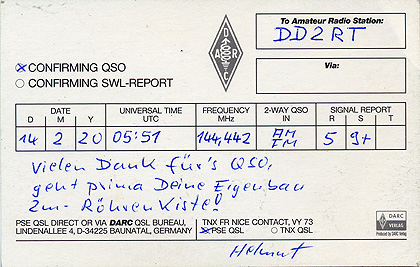 To Amateur Radio Station:
DD2RT
DARC
Via:
CONFIRMING QSO
CONFIRMING SWL-REPORT
DATE UNIVERSAL TIME FREQUENCY 2-WAY QSO SIGNAL REPORT
D M Y UTC MHz IN R S T
14 2 20 05:51 144,442 AM FM 5 9+
Vielen Dank für's QSO,
geht prima Deine Eigenbau
2m-Röhrenkiste!
PSE QSL DIRECT OR VIA DARC QSL BUREAU,
LINDENALLEE 4, D-34225 BAUNATAL, GERMANY
TNX FR NICE CONTACT, VY 73
PSE QSL TNX QSL
DARC
VERLAG
Produced by DARC Verlag
Helmut